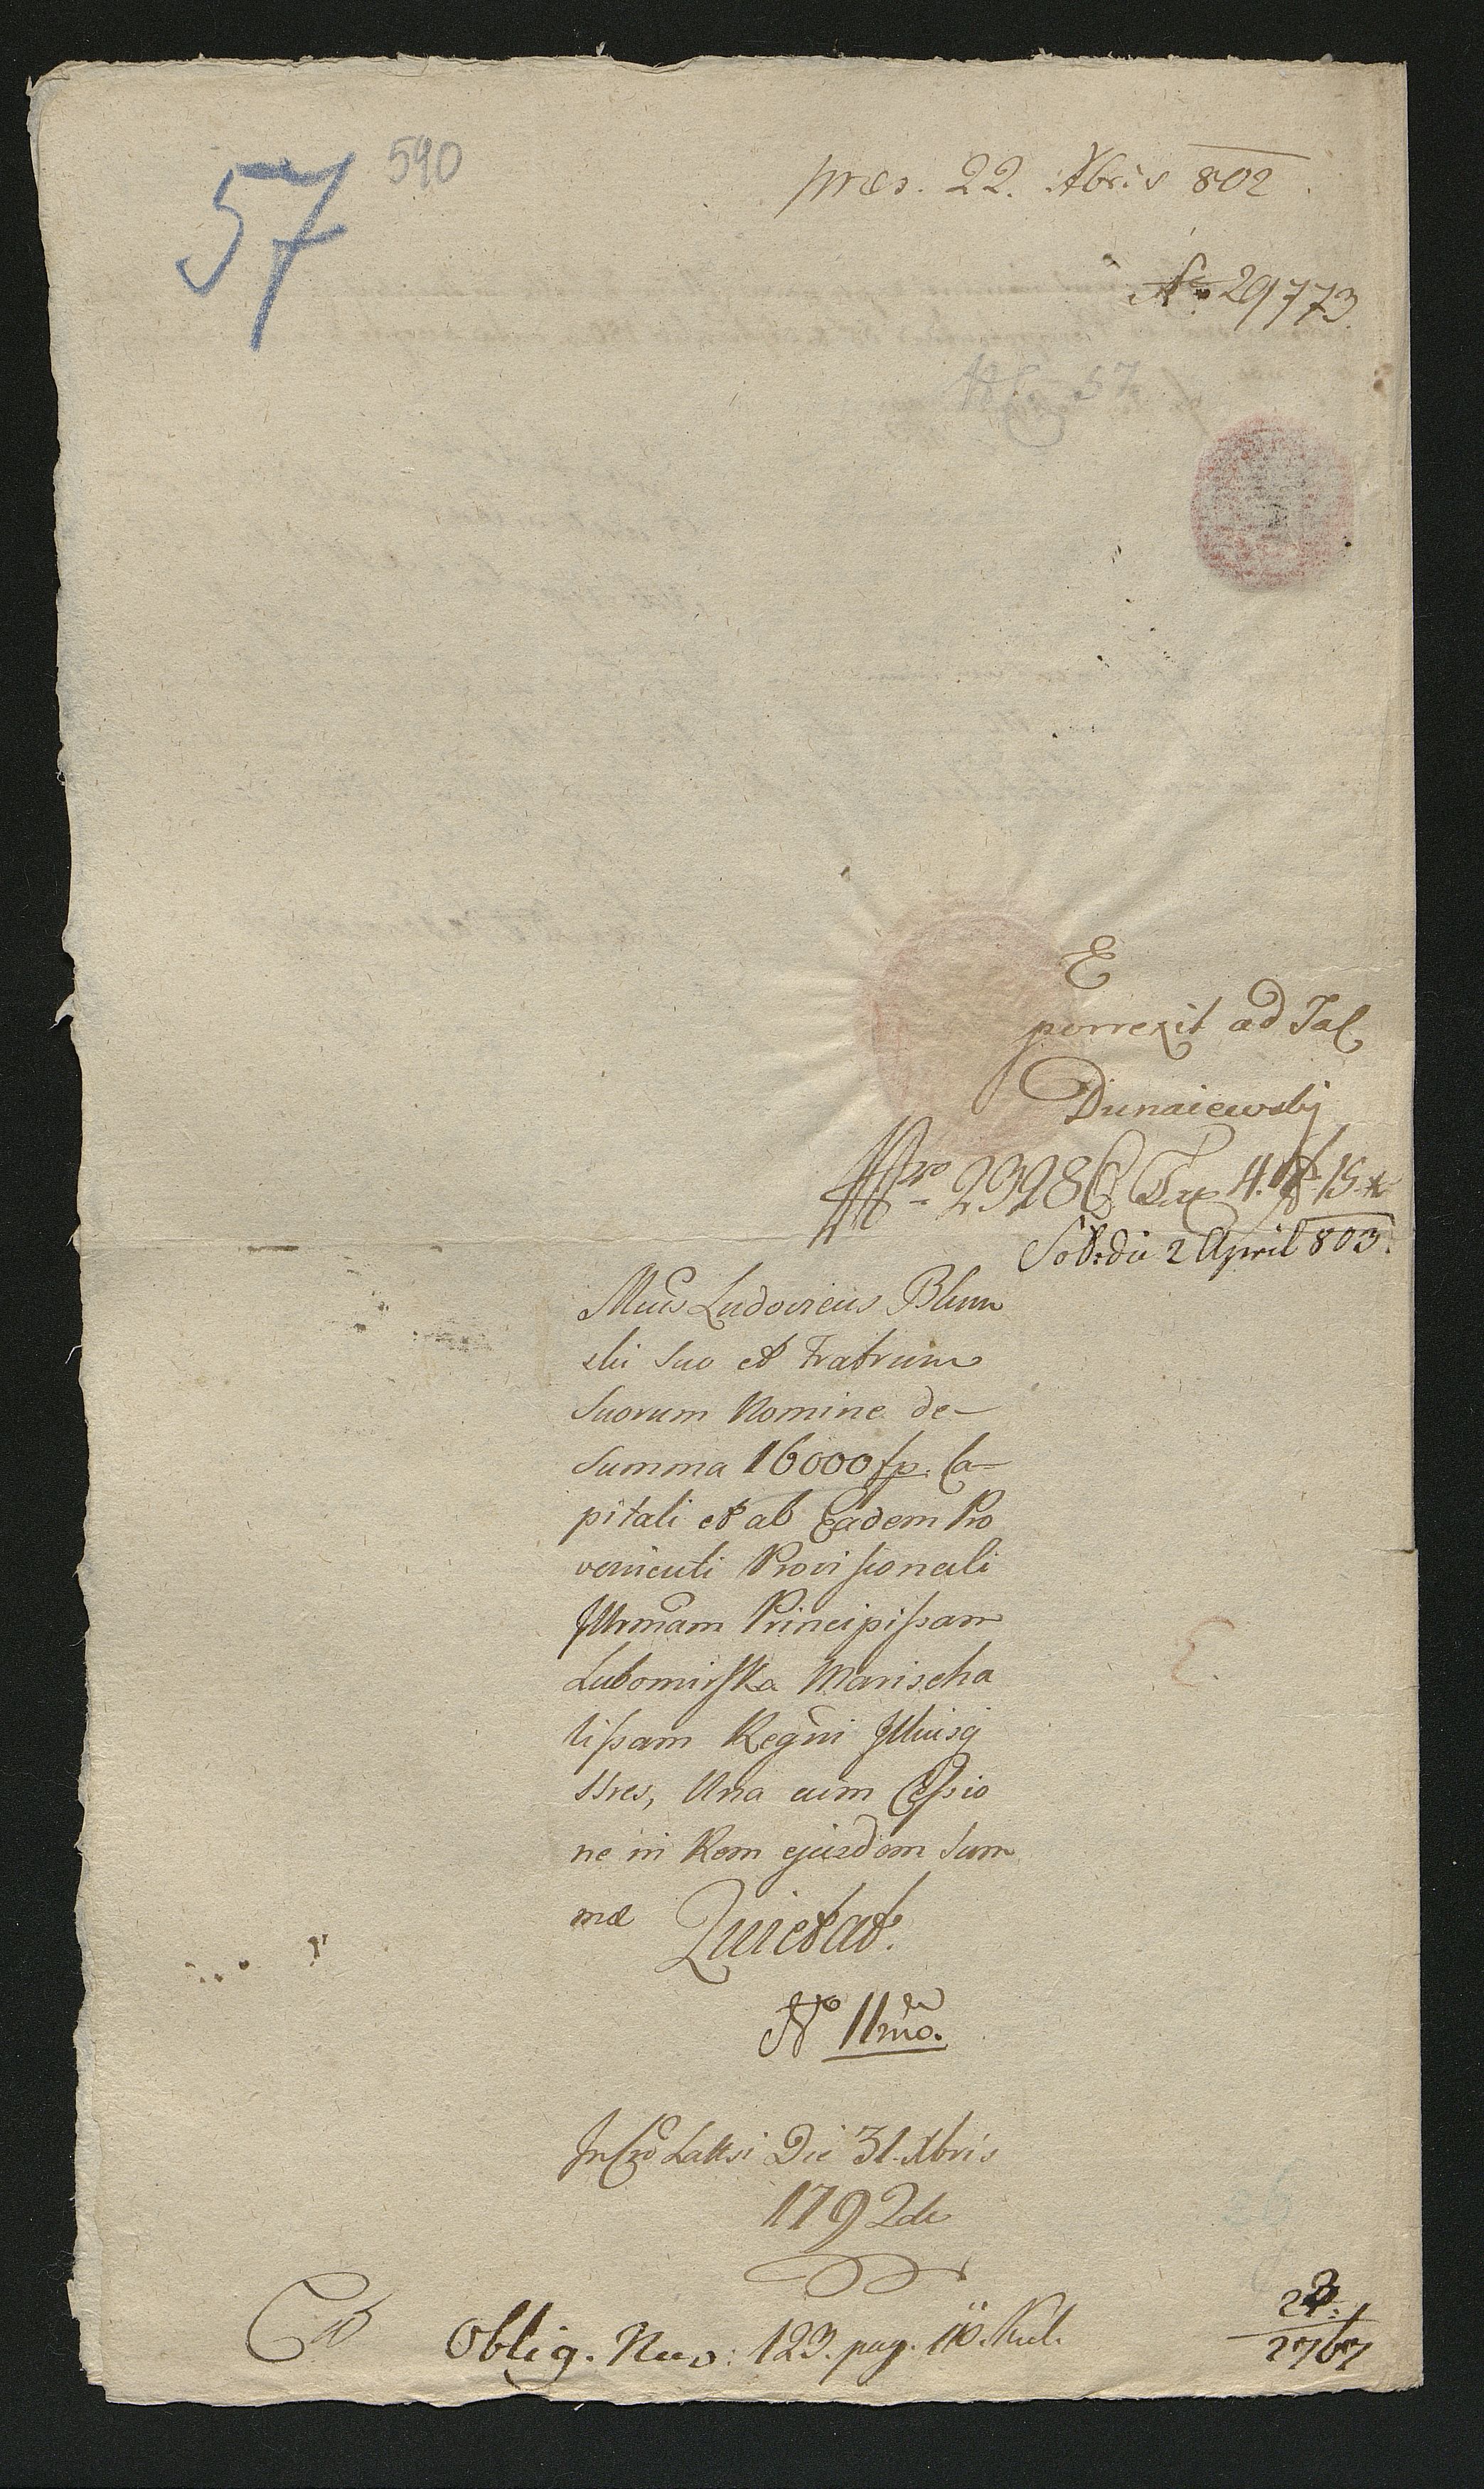 57
590
præs. 22. Xbris 802
No 29773
57
E
porrexit ad Tal
Dunaiewsky
Nro 23286 Tax 4. f 15 x
Sol: die 2 April 803.
Ludovicus Blum
ski suo et Fratrum
suorum Nomine de
summa 16000 fp. Ca-
pitali et ab Eadem Pro
venienti Provisionali
Illrmam Principissam
Lubomirska Marischa
lissam Regni
Una cum Cessio
ne in Rem ejusdem Sum
mæ Quietat.
No 11mo.
In Cro Die 31. Xbris
1792do
Oblig. Nro: 123. pag. 110.
2767